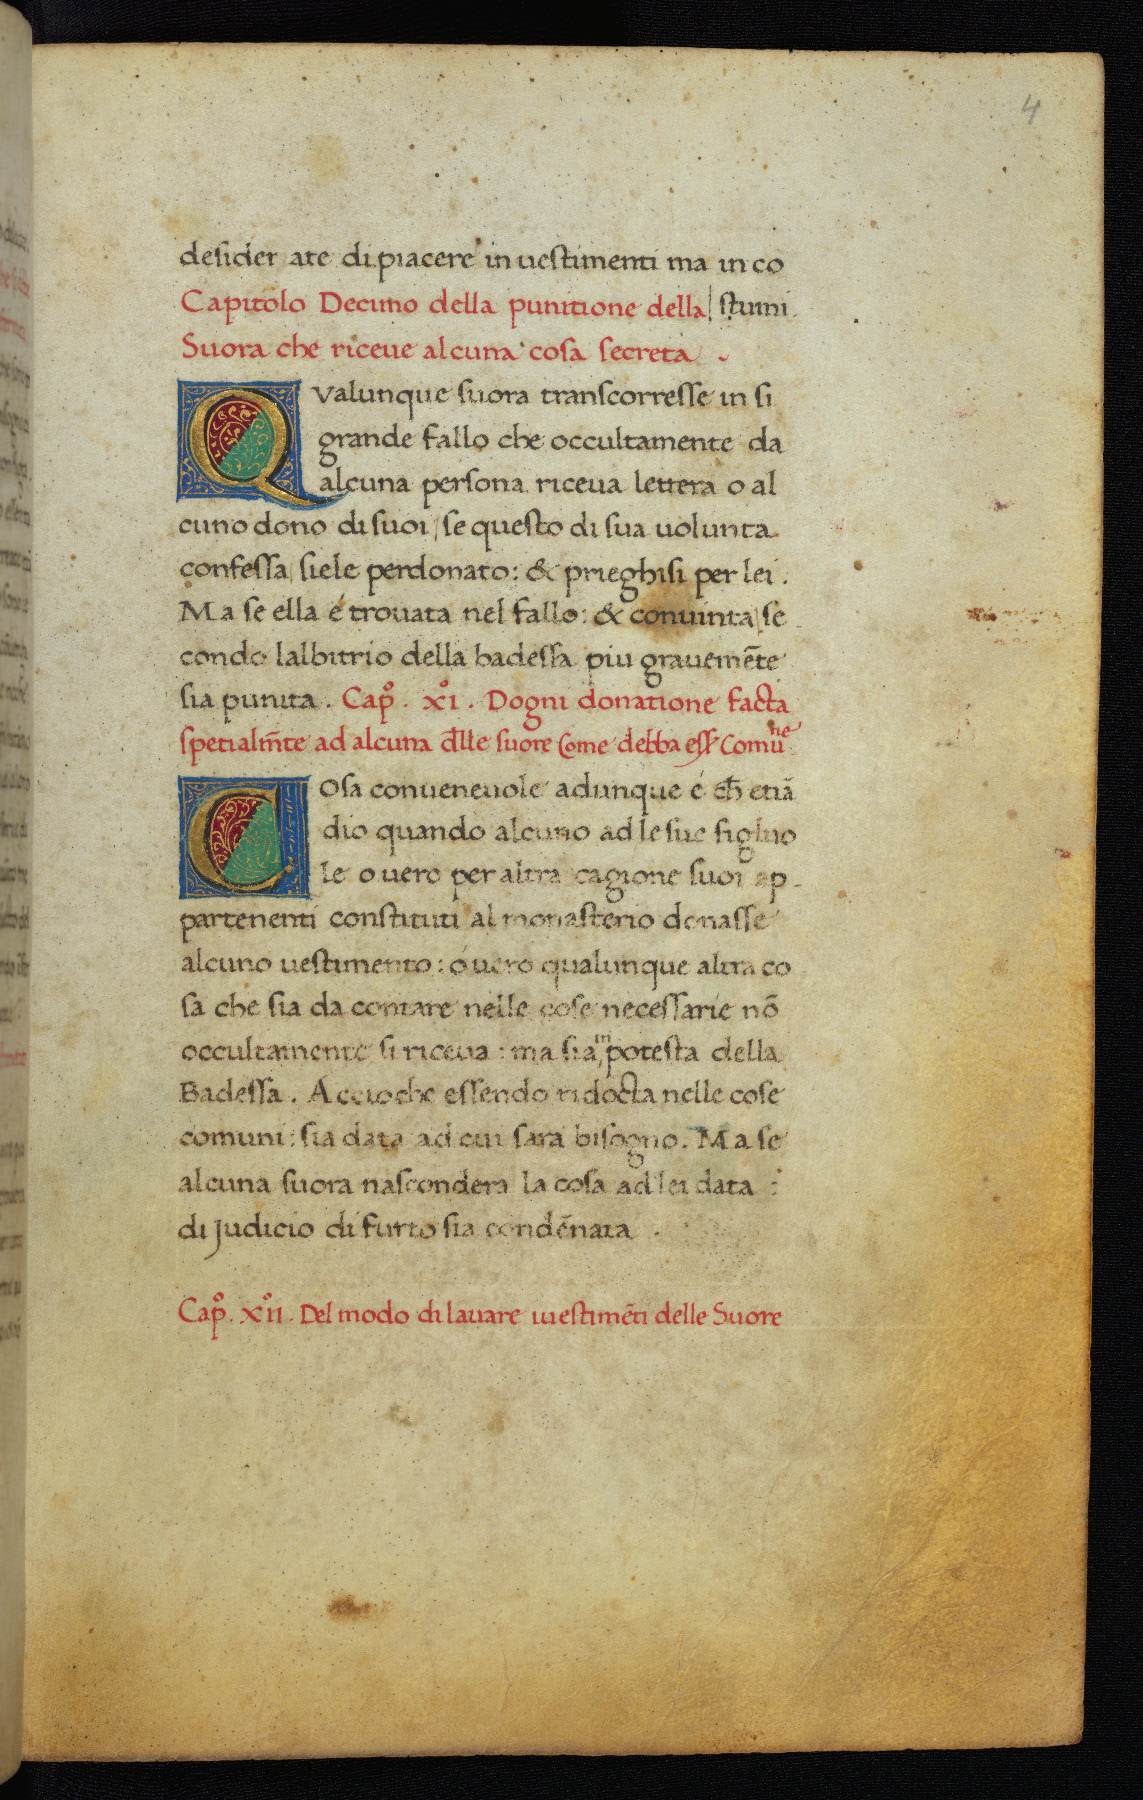 4
desiderate di piacere in uestimenti ma in co
Capitolo Decimo della punitione della | stumi.
Suora che riceue alcuna cosa secreta .
Qvalunque suora transcorresse in si
grande fallo che occultamente da
alcuna persona riceua lettera o al
cuno dono di suoi, se questo di sua uolunta
confessa, siele perdonato: & prieghisi per lei.
Ma se ella é trouata nel fallo: & conuinta, se
condo lalbitrio della badessa piu grauemēte
sia punita. Capº. xºi. Dogni donatione facta
spetialm̄te ad alcuna d̄lle suore Come debba eẞ̄ Comune
COsa conueneuole adunque é ch̄ etiā
dio quando alcuno ad le sue figluo
le o uero per altra cagione suoi ap-
partenenti constituti al monasterio donasse
alcuno uestimento: ó uero qualunque altra co
sa che sia da contare nelle cose necessarie nō
occultamente si riceua: ma sia in potesta della
Badessa. Accioche essendo ridocta nelle cose
comuni: sia data ad cui sara bisogno. Ma se
alcuna suora nascondera la cosa ad lei data :
di Judicio di furto sia condēnata .
Capº. xºii. Del modo di lauare iuestimēti delle Suore